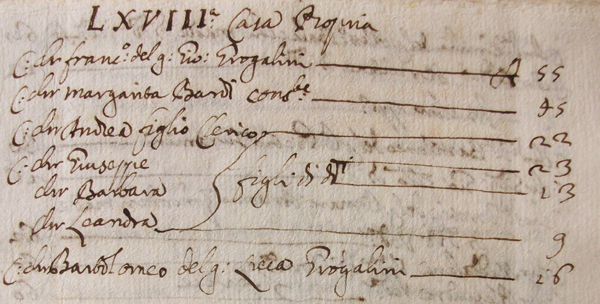 LXVIIIª Casa Propria
C: chr franc.º del q: Gio: Frogalini A 55
C: chr Margarita Bardi cons.te 45
C: chr Andrea figlio Clerico 22
C: chr Giuseppe 23
chr Barbara figli di dti 13
chr Leandra 9
C: chr Bartolomeo del q: Luca Frogalini 16